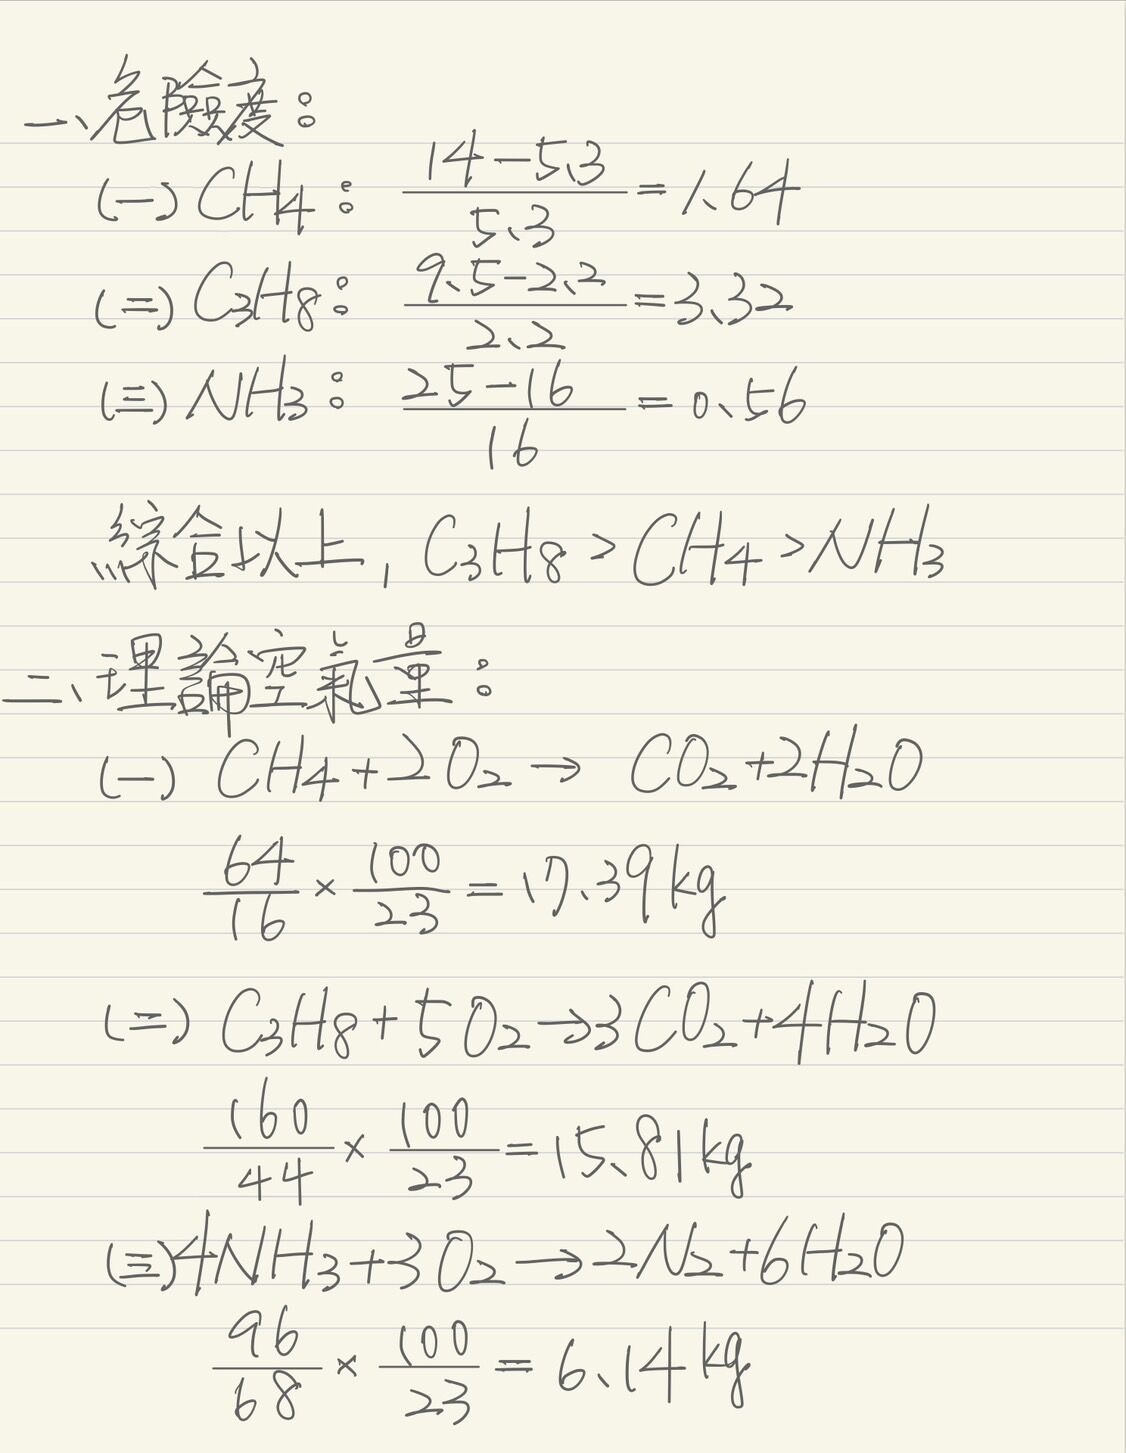 一、危險度：
(一) CH4： (14-5.3)/5.3 = 1.64
(二) C3H8： (9.5-2.2)/2.2 = 3.32
(三) NH3： (25-16)/16 = 0.56
綜合以上, C3H8 > CH4 > NH3
二、理論空氣量：
(一) CH4+2O2 → CO2+2H2O
64/16 × 100/23 = 17.39kg
(二) C3H8+5O2→3CO2+4H2O
160/44 × 100/23 = 15.81kg
(三)4NH3+3O2→2N2+6H2O
96/68 × 100/23 = 6.14kg